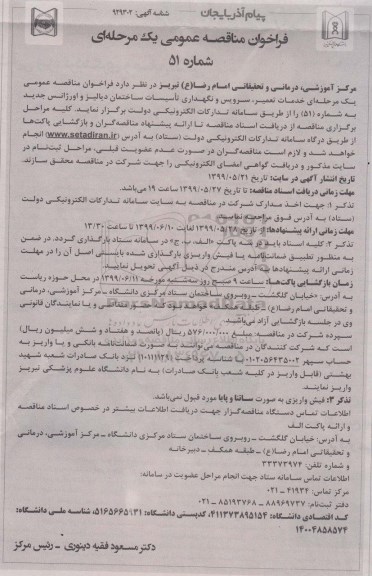 پیام آذربایجان
شناسه آگهی: ۹۲۹۳۰۲
فراخوان مناقصه عمومی یک مرحله‌ای
شماره ۵۱
مرکز آموزشی، درمانی و تحقیقاتی امام رضا(ع) تبریز در نظر دارد فراخوان مناقصه عمومی
یک مرحله‌ای خدمات تعمیر، سرویس و نگهداری تأسیسات ساختمان دیالیز و اورژانس جدید
به شماره (۵۱) را از طریق سامانه تدارکات الکترونیکی دولت برگزار نماید. کلیه مراحل
برگزاری مناقصه از دریافت اسناد مناقصه تا ارائه پیشنهاد مناقصه‌گران و بازگشایی پاکت‌ها
از طریق درگاه سامانه تدارکات الکترونیکی دولت (ستاد) به آدرس (www.setadiran.ir) انجام
خواهد شد و لازم است مناقصه‌گران در صورت عدم عضویت قبلی، مراحل ثبت‌نام در
سایت مذکور و دریافت گواهی امضای الکترونیکی را جهت شرکت در مناقصه محقق سازند.
تاریخ انتشار آگهی در سایت: تاریخ ۱۳۹۹/۰۵/۲۱
مهلت زمانی دریافت اسناد مناقصه: تا تاریخ ۱۳۹۹/۰۵/۲۷ ساعت ۱۹ می‌باشد.
تذکر ۱: جهت اخذ مدارک شرکت در مناقصه به سایت سامانه تدارکات الکترونیکی دولت
(ستاد) به آدرس فوق مراجعه نمایند.
مهلت زمانی ارائه پیشنهادها: از تاریخ ۱۳۹۹/۰۵/۲۸ لغایت ۱۳۹۹/۰۶/۱۰ تا ساعت ۱۳/۳۰
تذکر ۲: کلیه اسناد باید در سه پاکت «الف، ب، ج» در سامانه ستاد بارگذاری گردد. در ضمن
به منظور تطبیق ضمانت‌نامه یا فیش واریزی بارگذاری شده بایستی اصل آن را در مهلت
زمانی ارائه پیشنهادها به آدرس مندرج در ذیل آگهی تحویل نمایند.
زمان بازگشایی پاکت‌ها: ساعت ۹ صبح روز سه‌شنبه مورخه ۱۳۹۹/۰۶/۱۱ در محل حوزه ریاست
به آدرس: «خیابان گلگشت ـ روبروی ساختمان ستاد مرکزی دانشگاه ـ مرکز آموزشی، درمانی
و تحقیقاتی امام رضا(ع) خواهد بود که حضور متقاضی و یا نمایندگان قانونی
وی در جلسه بازگشایی آزاد می‌باشد.
سپرده شرکت در مناقصه: مبلغ ۵۷۶/۰۰۰/۰۰۰ ریال (پانصد و هفتاد و شش میلیون ریال)
است که شرکت کنندگان در مناقصه می‌توانند به صورت ضمانت‌نامه بانکی و یا واریز به
حساب سپهر ۰۱۰۲۰۵۶۴۳۵۰۰۲ با شناسه پرداخت (۱۰۱۱۱۳۹) نزد بانک صادرات شعبه شهید
بهشتی (قابل واریز در کلیه شعب بانک صادرات) به نام دانشگاه علوم پزشکی تبریز
واریز نمایند.
تذکر ۳: فیش واریزی به صورت ساتنا و پایا مورد قبول نمی‌باشد.
اطلاعات تماس دستگاه مناقصه‌گزار جهت دریافت اطلاعات بیشتر در خصوص اسناد مناقصه
و ارائه پاکت الف
به آدرس: خیابان گلگشت ـ روبروی ساختمان ستاد مرکزی دانشگاه ـ مرکز آموزشی، درمانی
و تحقیقاتی امام رضا(ع) ـ طبقه همکف ـ دبیرخانه
و شماره تلفن: ۳۳۳۷۳۹۷۴
اطلاعات تماس سامانه ستاد جهت انجام مراحل عضویت در سامانه:
مرکز تماس: ۴۱۹۳۴ ـ ۰۲۱
دفتر ثبت‌نام: ۸۸۹۶۹۷۳۷ و ۸۵۱۹۳۷۶۸ ـ ۰۲۱
کد اقتصادی دانشگاه: ۴۱۱۳۷۳۸۹۵۱۵۴، کدپستی دانشگاه: ۵۱۶۵۶۶۵۱۳۱، شناسه ملی دانشگاه:
۱۴۰۰۴۸۵۸۵۷۴
دکتر مسعود فقیه دینوری ـ رئیس مرکز